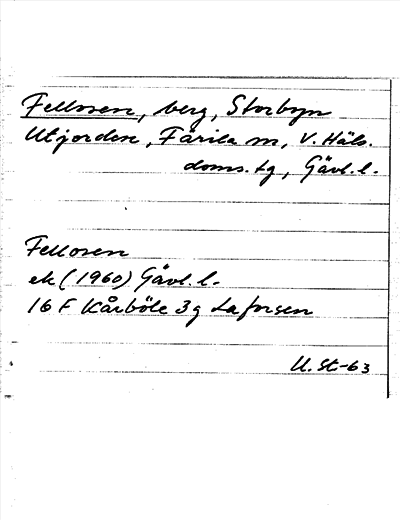 Fellosen, berg, Storbyn
Utjorden, Färila sn, V. Häls.
doms.tg, Gävl. l.
Fellosen
ek (1960) Gävl. l.
16 F Kårböle 3g Laforsen
U. St-63